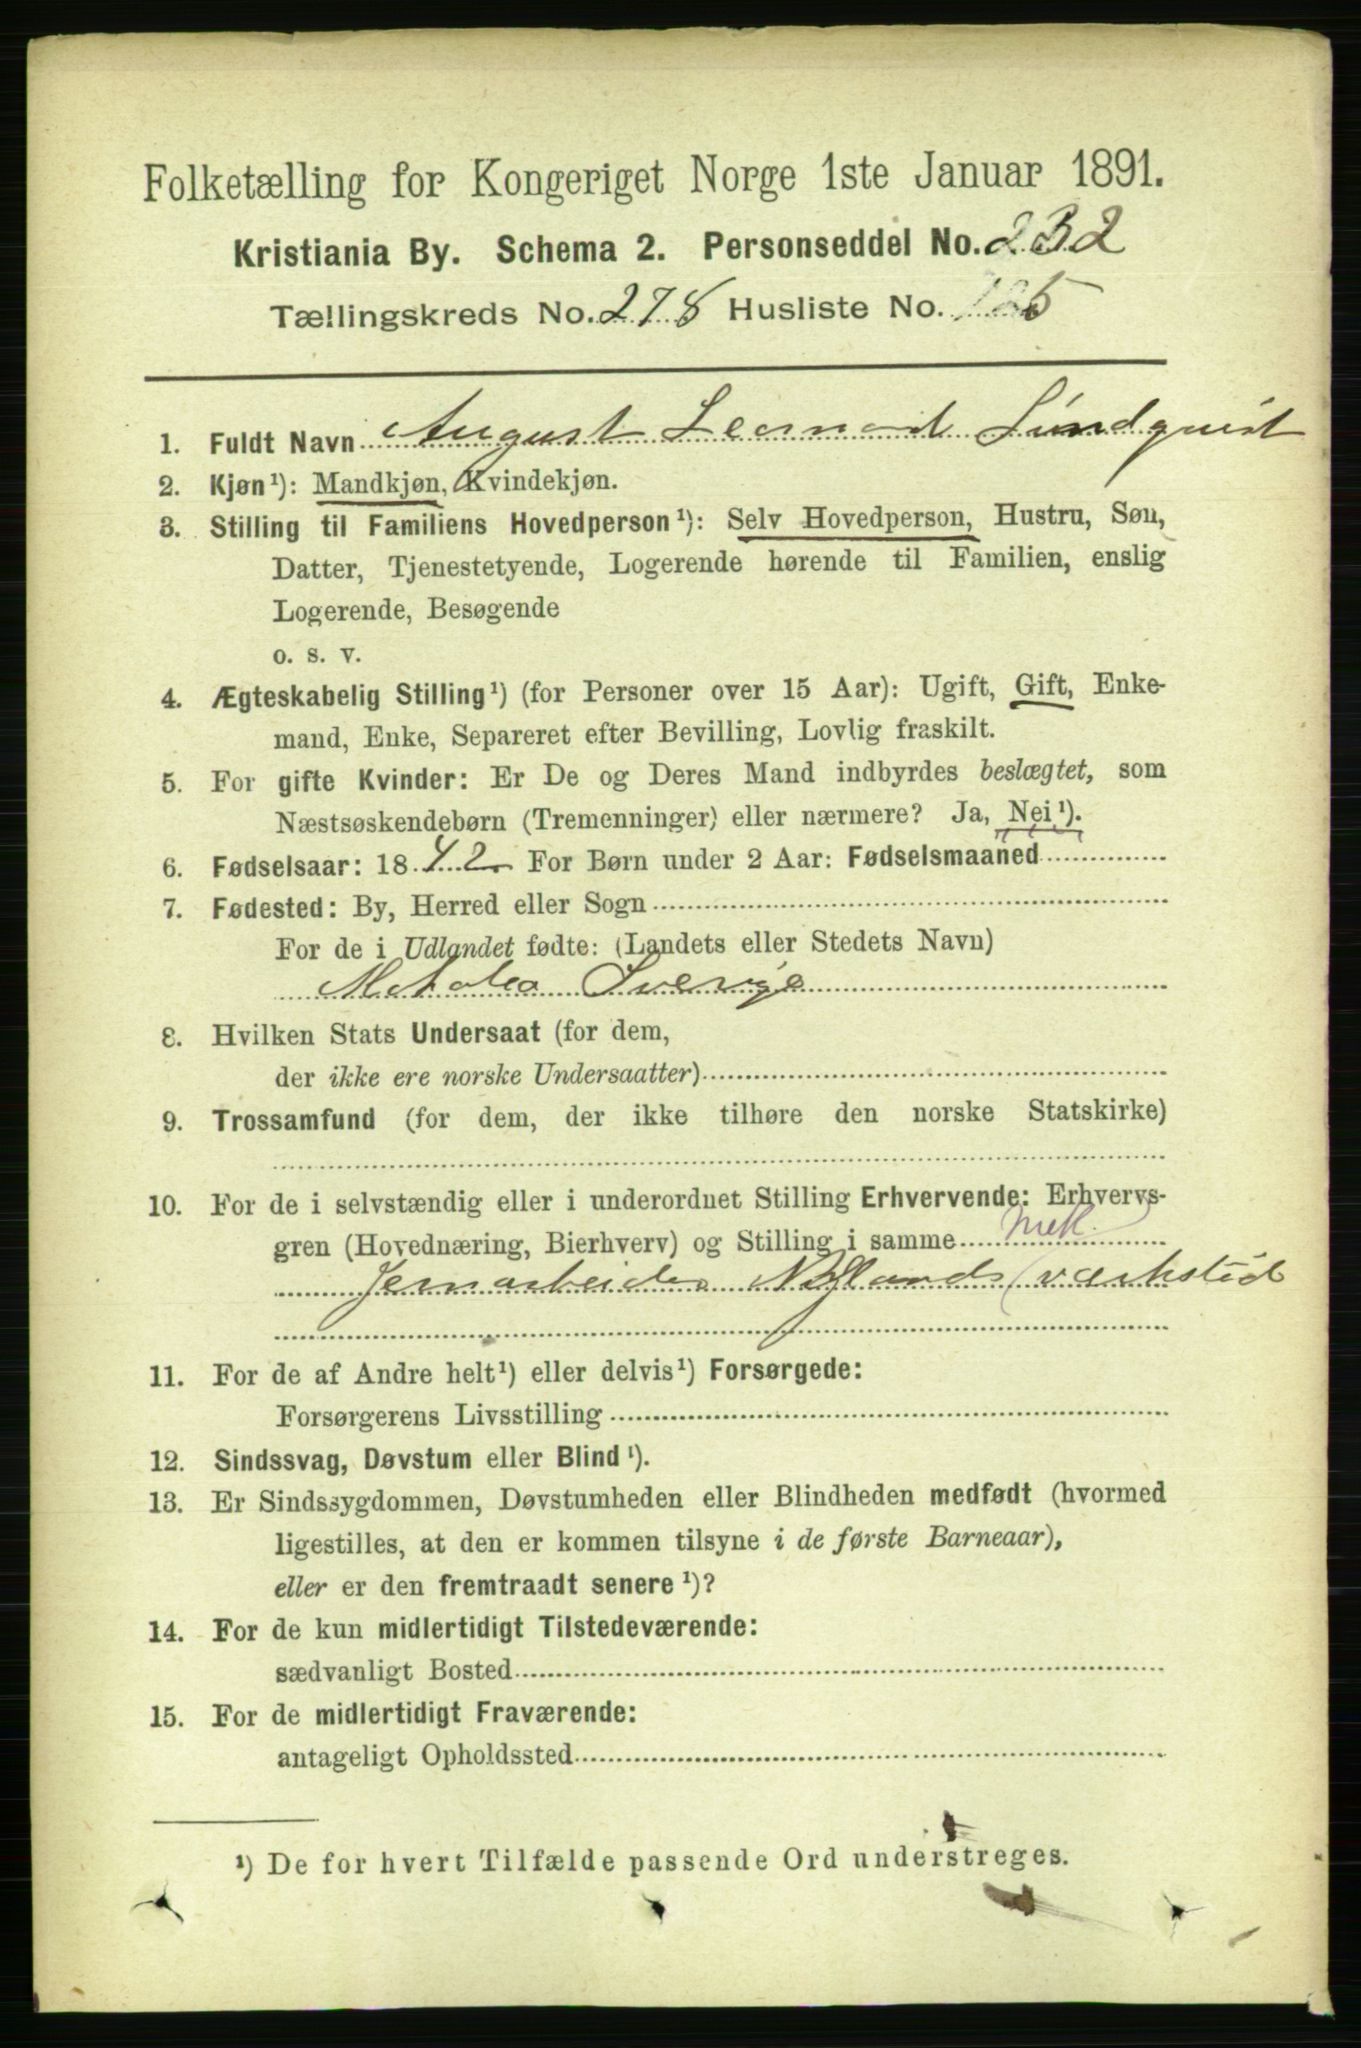 Folketælling for Kongeriget Norge 1ste Januar 1891.
Kristiania By. Schema 2. Personseddel No. 232
Tællingskreds No. 278 Husliste No. 125
1. Fuldt Navn August Leonard Lindquist
2. Kjøn¹): Mandkjøn, Kvindekjøn.
3. Stilling til Familiens Hovedperson¹): Selv Hovedperson, Hustru, Søn,
Datter, Tjenestetyende, Logerende hørende til Familien, enslig
Logerende, Besøgende
o. s. v.
4. Ægteskabelig Stilling¹) (for Personer over 15 Aar): Ugift, Gift, Enke-
mand, Enke, Separeret efter Bevilling, Lovlig fraskilt.
5. For gifte Kvinder: Er De og Deres Mand indbyrdes beslægtet, som
Næstsøskendebørn (Tremenninger) eller nærmere? Ja, Nei¹).
6. Fødselsaar: 1842 For Børn under 2 Aar: Fødselsmaaned
7. Fødested: By, Herred eller Sogn
For de i Udlandet fødte: (Landets eller Stedets Navn)
Sverige
8. Hvilken Stats Undersaat (for dem,
der ikke ere norske Undersaatter)
9. Trossamfund (for dem, der ikke tilhøre den norske Statskirke)
10. For de i selvstændig eller i underordnet Stilling Erhvervende: Erhvervs-
gren (Hovednæring, Bierhverv) og Stilling i samme mek.
Jernarbeider Nylands værksted
11. For de af Andre helt¹) eller delvis¹) Forsørgede:
Forsørgerens Livsstilling
12. Sindssvag, Døvstum eller Blind¹).
13. Er Sindssygdommen, Døvstumheden eller Blindheden medfødt (hvormed
ligestilles, at den er kommen tilsyne i de første Barneaar),
eller er den fremtraadt senere¹)?
14. For de kun midlertidigt Tilstedeværende:
sædvanligt Bosted
15. For de midlertidigt Fraværende:
antageligt Opholdssted
¹) De for hvert Tilfælde passende Ord understreges.